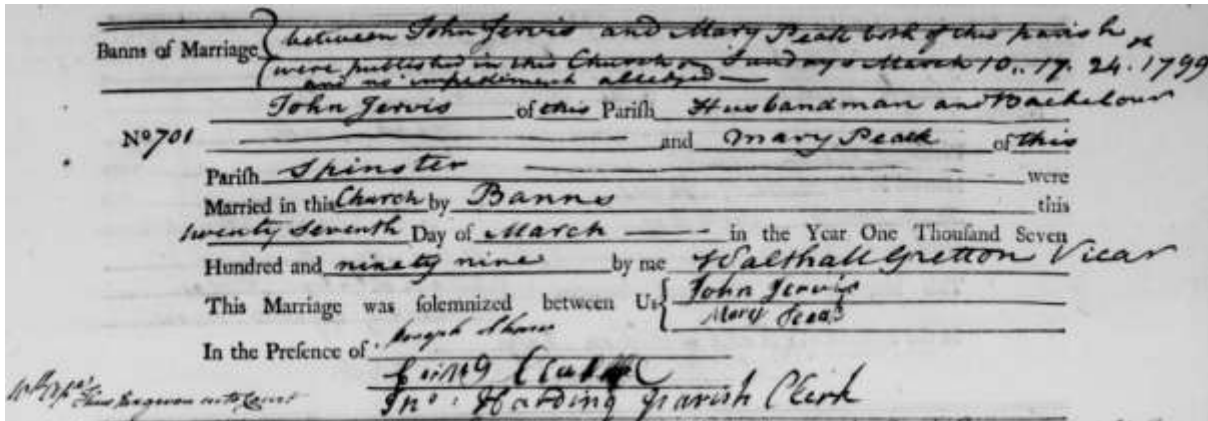 Banns of Marriage between John Jervis and Mary Peake both of this parish
were published in this Church on Sundays March 10.. 17. 24.th 1799
and no impediment alledged
John Jervis of this Parish Husbandman and Bachelour
No 701 and Mary Peake of this
Parish Spinster were
Married in this Church by Banns this
twenty Seventh Day of March in the Year One Thousand Seven
Hundred and ninety nine by me Walthall Gretton Vicar
This Marriage was solemnized between Us John Jervis
Mary
In the Presence of Joseph
Jno: Harding Parish Clerk